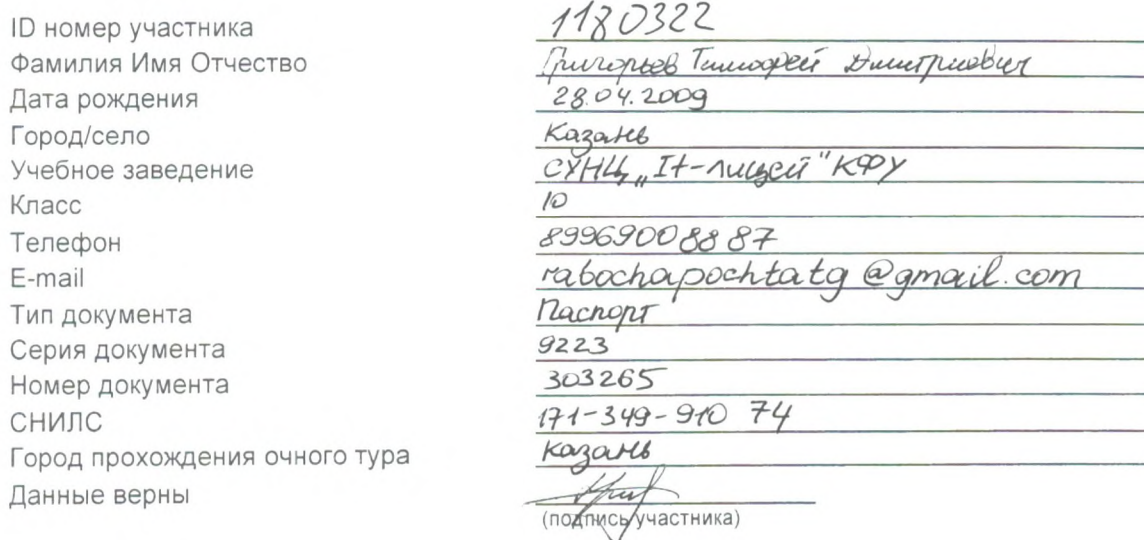 ID номер участника 1180322
Фамилия Имя Отчество Григорьев Тимофей Дмитриевич
Дата рождения 28.04.2009
Город/село Казань
Учебное заведение СУНЦ „It-лицей" КФУ
Класс 10
Телефон 89969008887
E-mail rabochapochtatg@gmail.com
Тип документа Паспорт
Серия документа 9223
Номер документа 303265
СНИЛС 171-349-910 74
Город прохождения очного тура Казань
Данные верны
(подпись участника)